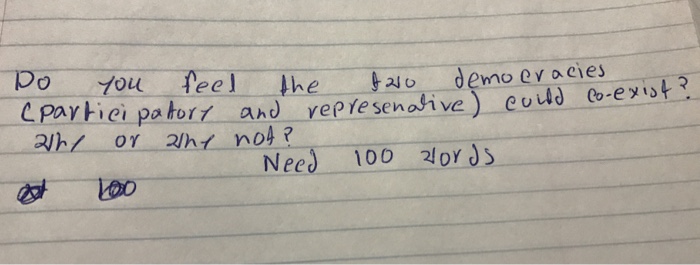 Do you feel the two democracies
(participatory and represenative) could co-exist?
why or why not?
Need 100 words
100